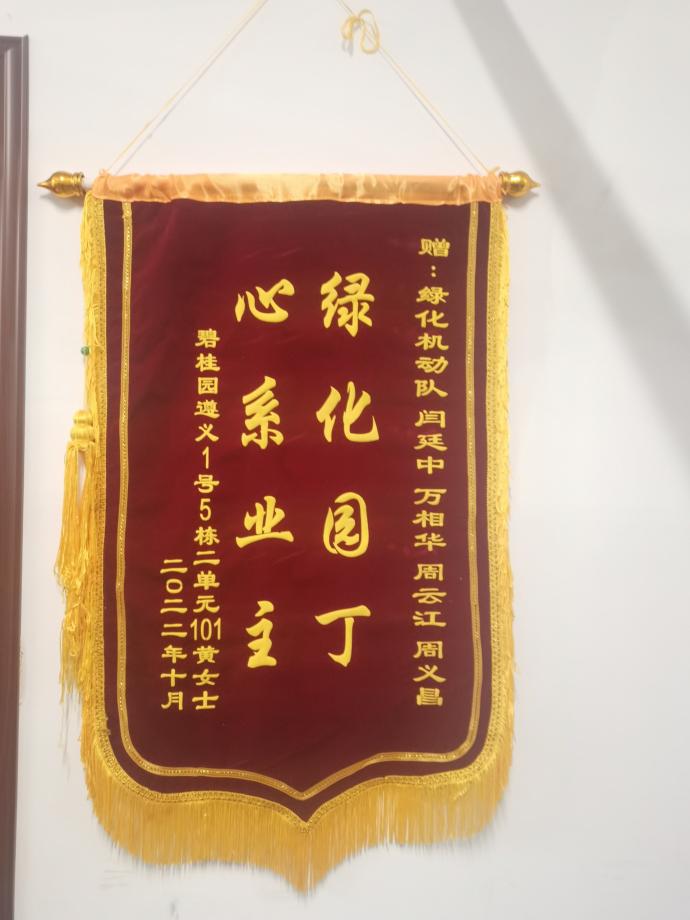 赠：绿化机动队 闫廷中 万相华 周云江 周义昌
绿化园丁
心系业主
碧桂园遵义1号5栋二单元101黄女士
二〇二二年十月